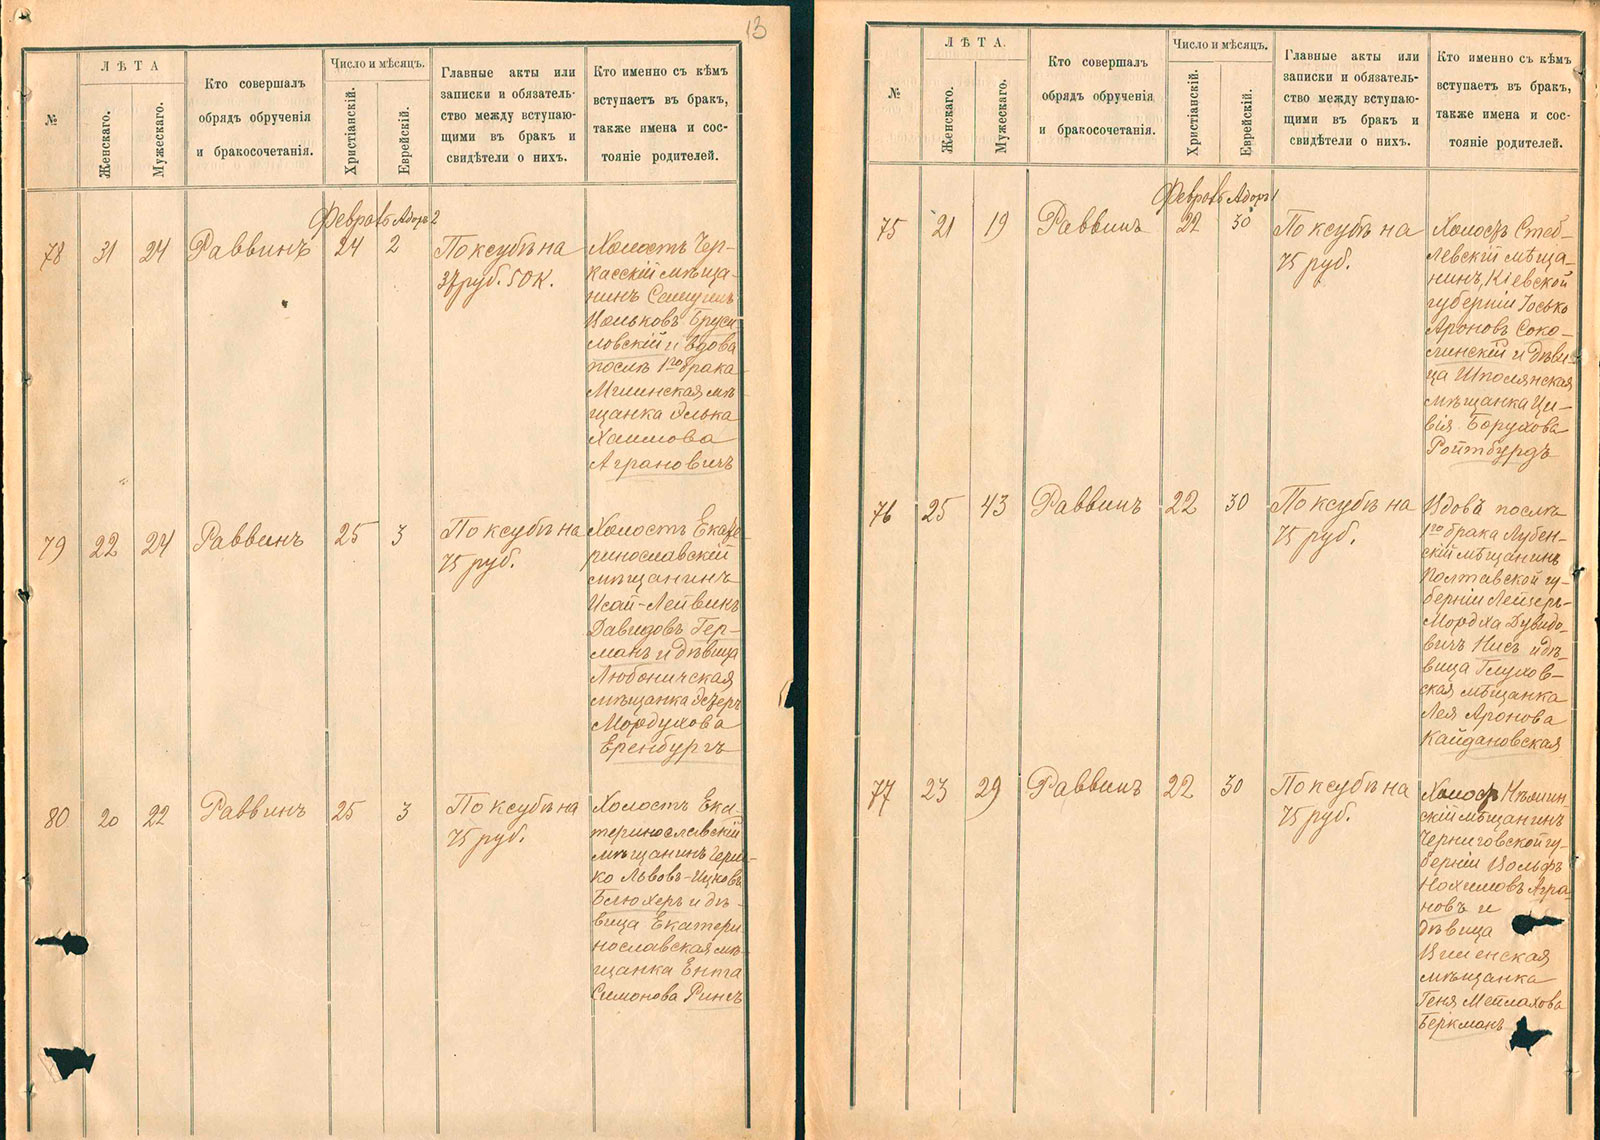 13
№
ЛѢТА
Женскаго.
Мужескаго.
Кто совершалъ
обрядъ обрученія
и бракосочетанія.
Число и мѣсяцъ.
Христіанскій.
Еврейскій.
Главные акты или
записки и обязатель-
ство между вступаю-
щими въ бракъ и
свидѣтели о нихъ.
Кто именно съ кѣмъ
вступаетъ въ бракъ,
также имена и сос-
тояніе родителей.
Февраль Адаръ 2
78
31
24
Раввинъ
24
2
По ксубѣ на
37 руб. 50 к.
Холостъ Чер-
касскій мѣща-
нинъ Самуилъ
Ицьковъ Бруси
ловскій и вдова
послѣ 1го брака
Мглинская мѣ
щанка Элька
Хаимова
Аграновичъ
79
22
24
Раввинъ
25
3
По ксубѣ на
75 руб.
Холостъ Екате
ринославскій
мѣщанинъ
Исай-Лейвинъ
Давидовъ Гер-
манъ и дѣвица
Любоничская
мѣщанка Эстеръ
Мордухова
Еренбургъ
80
20
22
Раввинъ
25
3
По ксубѣ на
75 руб.
Холостъ Ека
теринославскій
мѣщанинъ Герш-
ко Львовъ-Ицковъ
Блюхеръ и дѣ-
вица Екатери
нославская мѣ-
щанка Ента
Симонова Ринсъ
№
ЛѢТА.
Женскаго.
Мужескаго.
Кто совершалъ
обрядъ обрученія
и бракосочетанія.
Число и мѣсяцъ.
Христіанскій.
Еврейскій.
Главные акты или
записки и обязатель-
ство между вступаю-
щими въ бракъ и
свидѣтели о нихъ.
Кто именно съ кѣмъ
вступаетъ въ бракъ,
также имена и сос-
тояніе родителей.
Февраль Адаръ 1
75
21
19
Раввинъ
22
30
По ксубѣ на
75 руб.
Холостъ Стеб-
левскій мѣща-
нинъ, Кіевской
губерніи Іосько
Ароновъ Соко-
линскій и дѣви-
ца Шполянская
мѣщанка Ци-
вія Борухова
Ройтбурдъ
76
25
43
Раввинъ
22
30
По ксубѣ на
75 руб.
Вдовъ послѣ
1го брака Лубен-
скій мѣщанинъ
Полтавской гу-
берніи Лейзеръ-
Мордха Дувидо-
вичъ Нисъ и дѣ-
вица Глухов-
ская мѣщанка
Лея Аронова
Кайдановская
77
23
29
Раввинъ
22
30
По ксубѣ на
75 руб.
Холостъ Нѣжин
скій мѣщанинъ
Черниговской гу-
берніи Вольфъ
Нохимовъ Агра
новъ и
дѣвица
Виленская
мѣщанка
Геня Мейлахова
Беркманъ